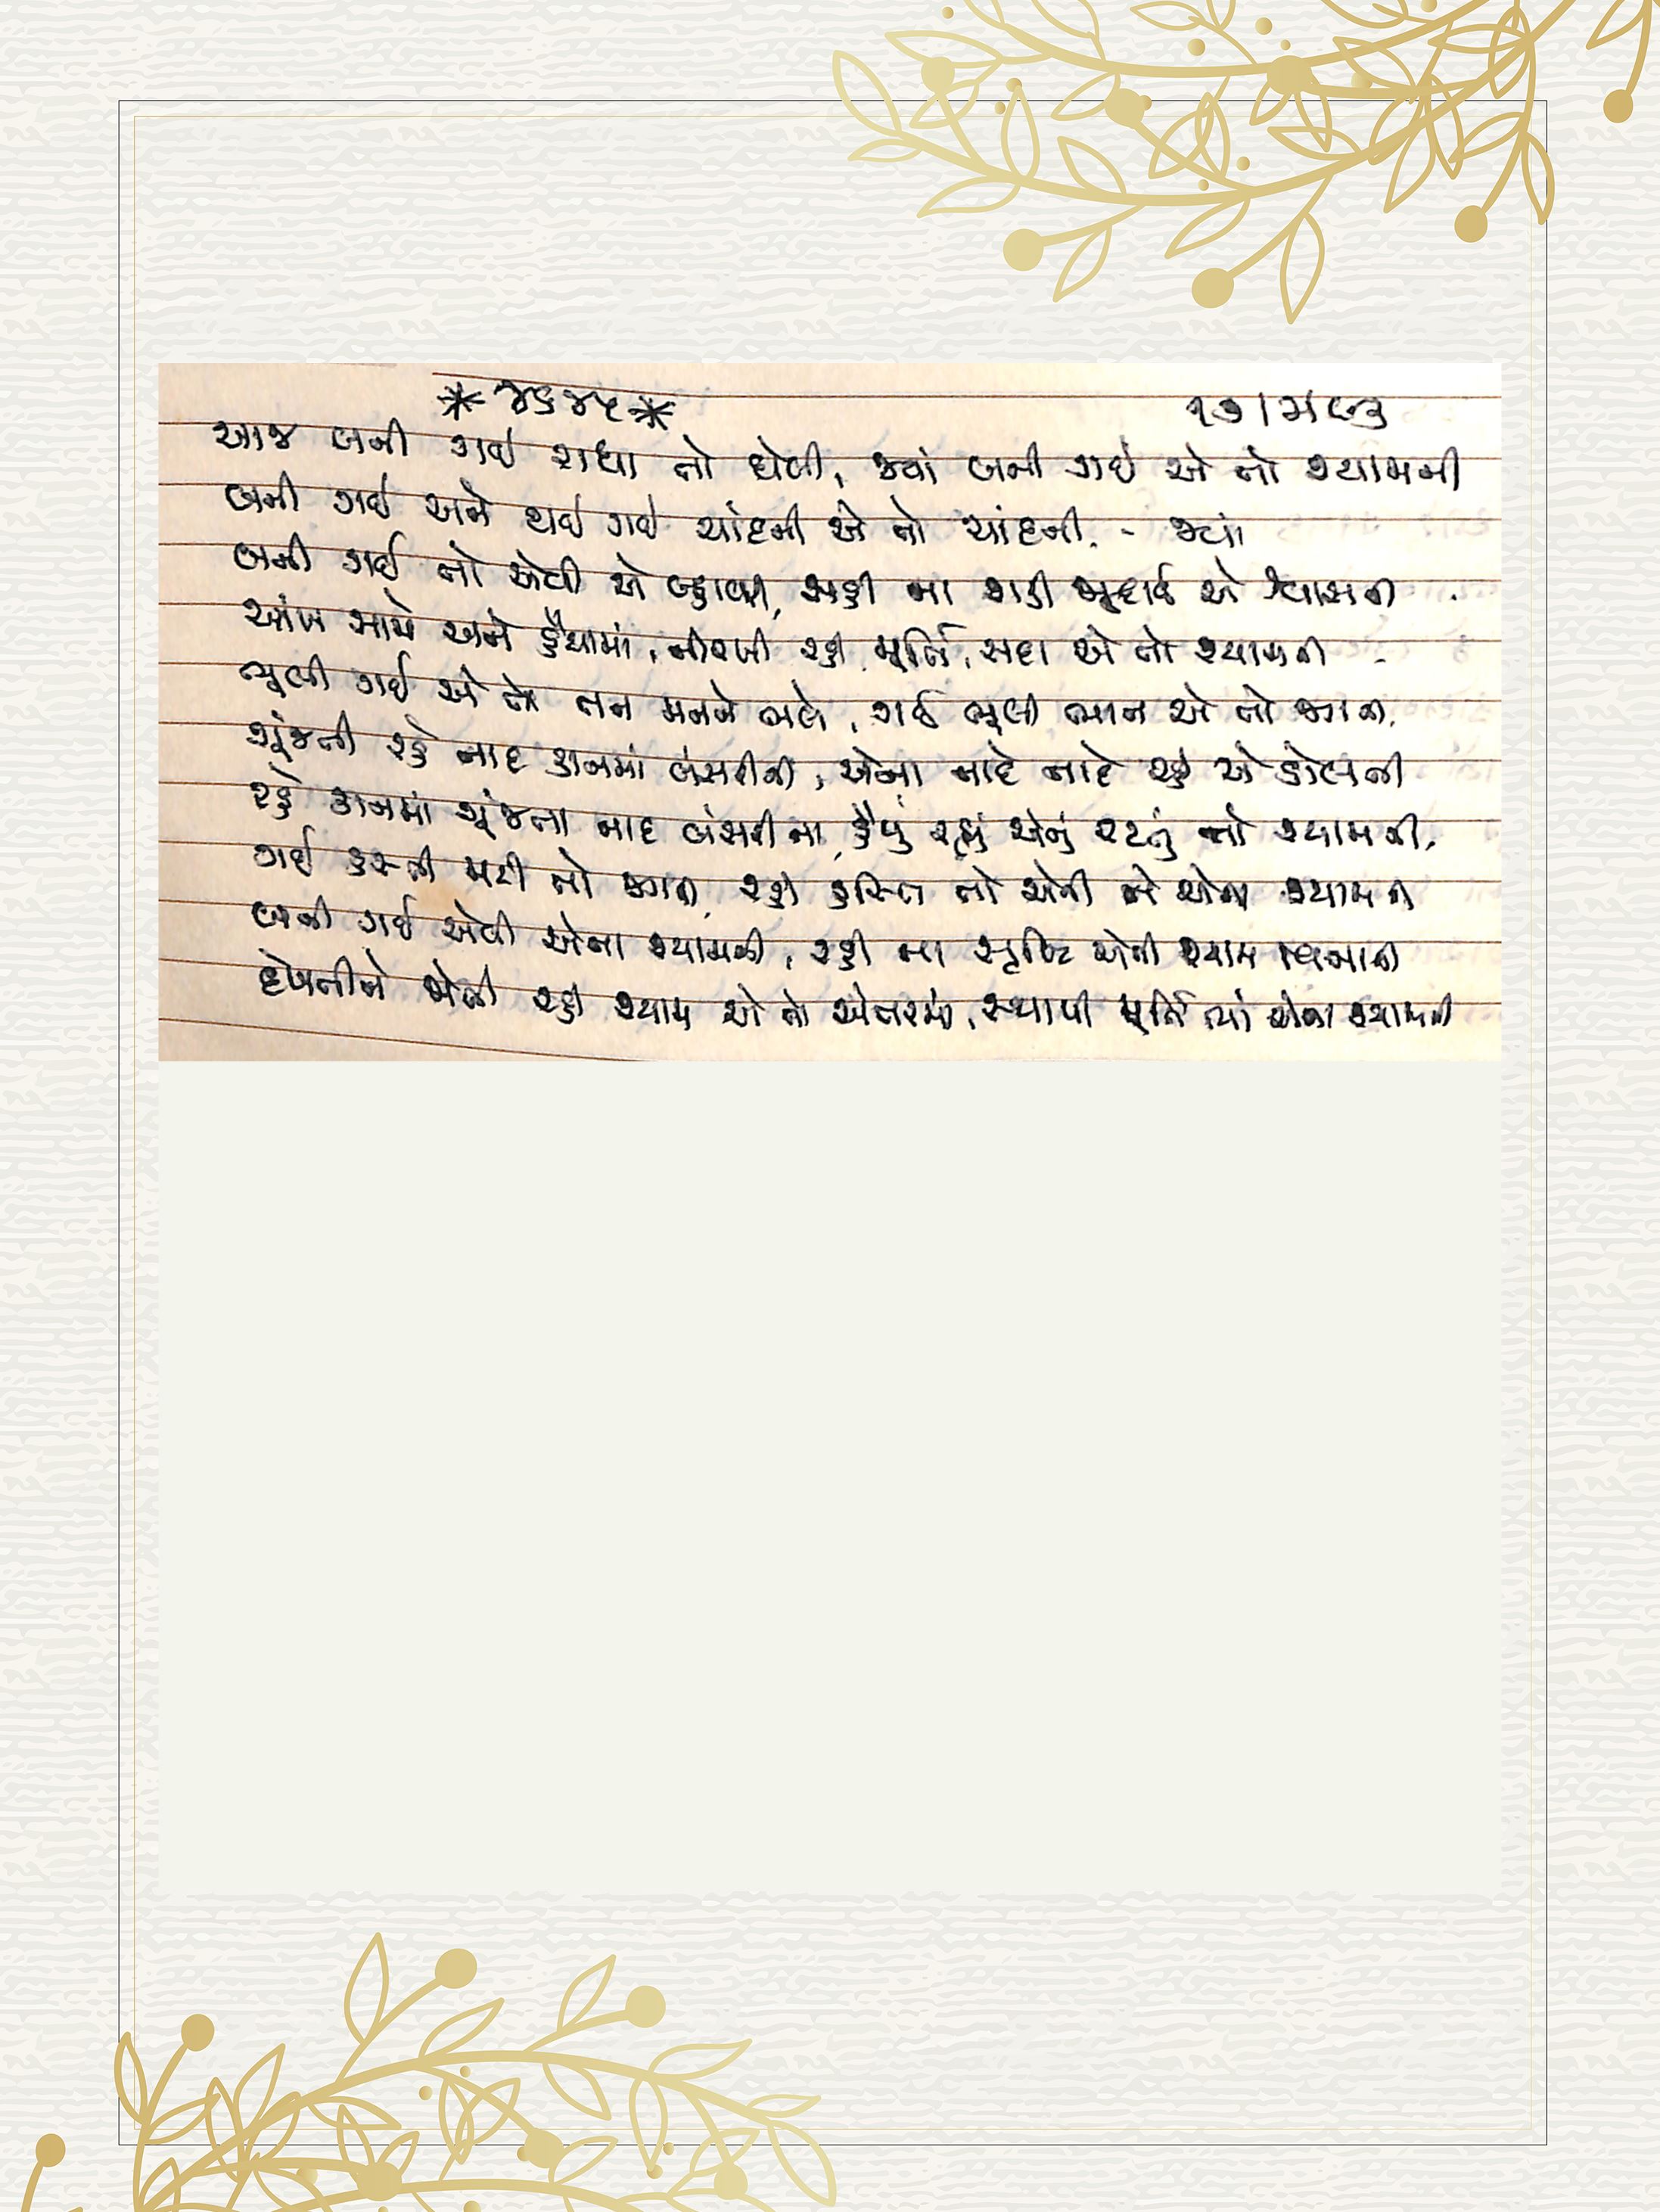 * ૪૬૪૫ *
આજ બની ગઈ રાધા તો ઘેલી, જ્યાં બની ગઈ એ તો શ્યામની
બની ગઈ અને થઈ ગઈ ચાંદની એ તો ચાંદની. - જ્યાં
બની ગઈ તો એવી એ બ્હાવરી, રહી ના શકી જુદાઈ એ શ્વાસની
આંખ સામે અને હૈયામાં, નીરખી રહી મૂર્તિ, સદા એ તો શ્યામની
ભૂલી ગઈ એ તો તન મનને ભલે, ગઈ ભૂલી ભાન એ તો જગની.
ગૂંજતી રહે નાદ કાનમાં બંસરીની, એના નાદે નાદે રહી એ ડોલતી
રહે કાનમાં ગૂંજતા નાદ બંસરીના, હૈયું રહ્યું એનું રટતું તો શ્યામની.
ગઈ હસ્તી મટી તો જગની, રહી હસ્તિ તો એની ને એના શ્યામની
બની ગઈ એવી એના શ્યામની, રહી ના સૃષ્ટિ એની શ્યામ વિનાની
દેખાતીને ખેલી રહી શ્યામ એ તો અંતરમાં, સ્થાપી મૂર્તિ ત્યાં એના શ્યામની